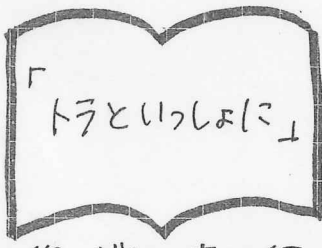 「トラといっしょに」